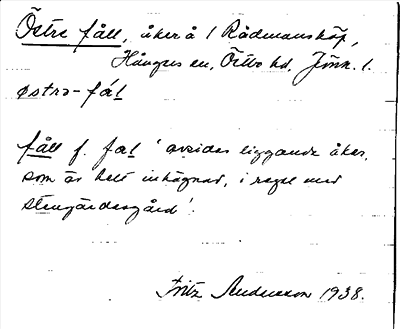 Östre fåll, åker å 1 Rådmansköp,
Hångers sn, Östbo hd, Jönk. l.
østrə-fa̍l
fåll f. fal ' avsides liggande åker,
som är helt inhägnad, i regel med
stengärdesgård'.
Fritz Andersson 1938.